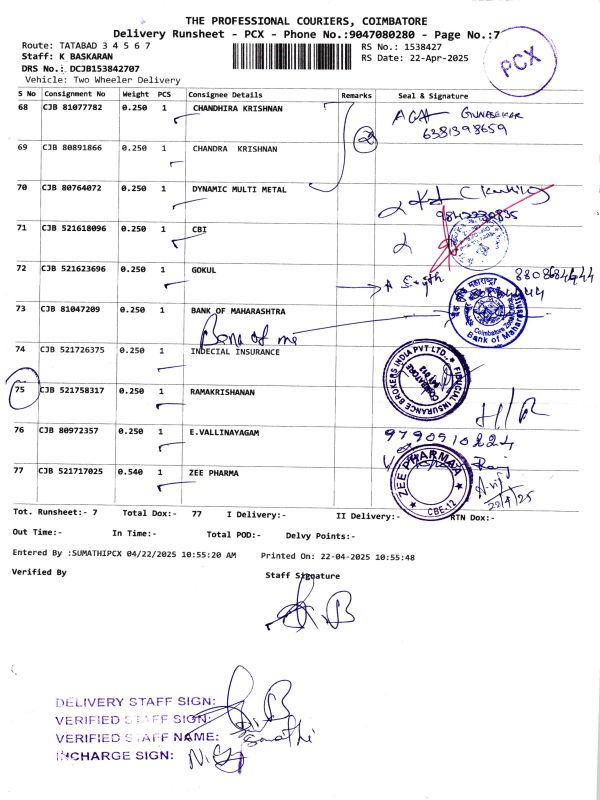 THE PROFESSIONAL COURIERS, COIMBATORE
Delivery Runsheet - PCX - Phone No.:9047080280 - Page No.:7
Route: TATABAD 3 4 5 6 7
RS No.: 1538427
Staff: K BASKARAN
RS Date: 22-Apr-2025
DRS No.: DCJB153842707
Vehicle: Two Wheeler Delivery
PCX
S No Consignment No Weight PCS Consignee Details Remarks Seal & Signature
68 CJB 81077782 0.250 1 CHANDHIRA KRISHNAN
6381398659
69 CJB 80891866 0.250 1 CHANDRA KRISHNAN
2
70 CJB 80764072 0.250 1 DYNAMIC MULTI METAL
9842230835
71 CJB 521618096 0.250 1 CBI
72 CJB 521623696 0.250 1 GOKUL
73 CJB 81047209 0.250 1 BANK OF MAHARASHTRA
Bank of Maharashtra
74 CJB 521726375 0.250 1 INDECIAL INSURANCE
FIDUCIAL INSURANCE BROKERS INDIA PVT LTD.,
COIMBATORE
75 CJB 521758317 0.250 1 RAMAKRISHANAN
H/R
76 CJB 80972357 0.250 1 E.VALLINAYAGAM
9790910224
77 CJB 521717025 0.540 1 ZEE PHARMA
ZEE PHARMAA
CBE-12
22/4/25
Tot. Runsheet:- 7 Total Dox:- 77 I Delivery:- II Delivery:- RTN Dox:-
Out Time:- In Time:- Total POD:- Delvy Points:-
Entered By :SUMATHIPCX 04/22/2025 10:55:20 AM Printed On: 22-04-2025 10:55:48
Verified By
Staff Signature
DELIVERY STAFF SIGN:
VERIFIED STAFF SIGN:
VERIFIED STAFF NAME:
INCHARGE SIGN: